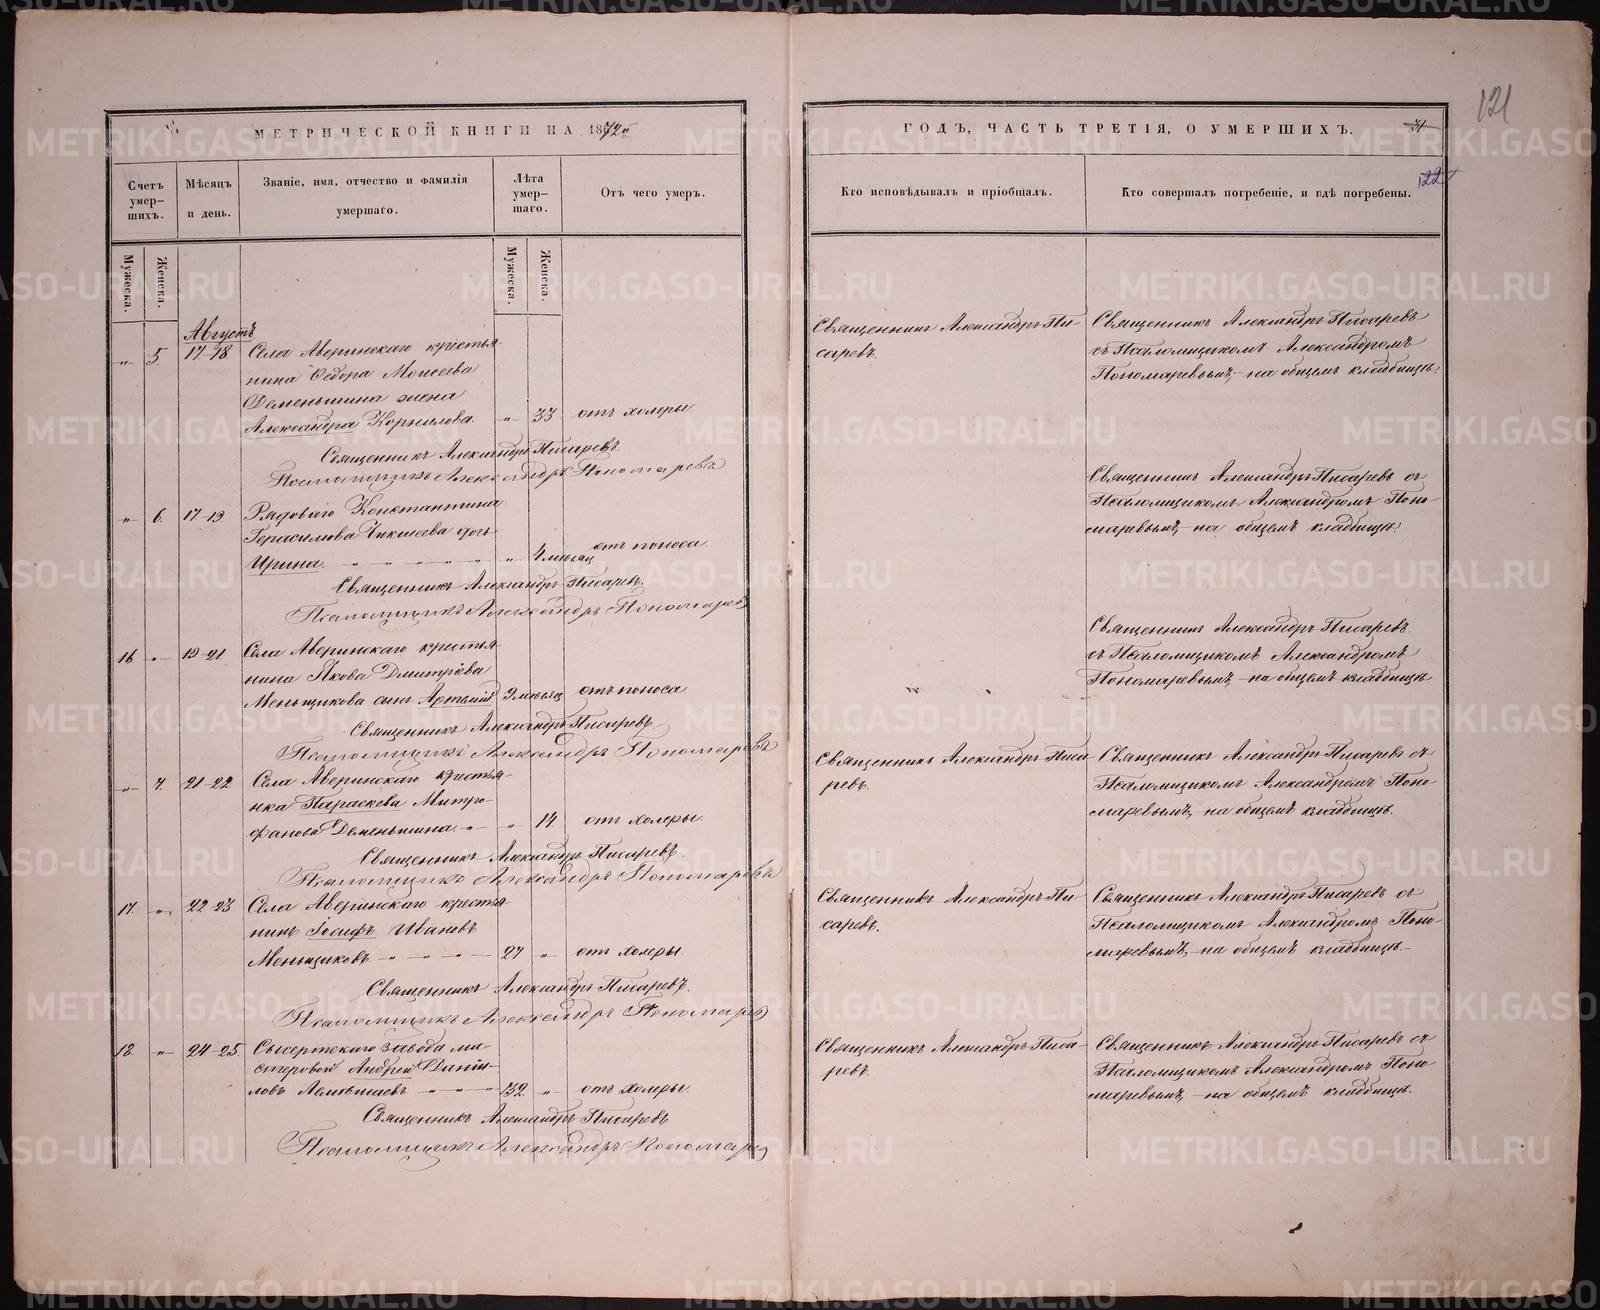 МЕТРИЧЕСКОЙ КНИГИ НА 1872й
Счетъ умер-шихъ.
Мѣсяцъ и день.
Званіе, имя, отчество и фамилія умершаго.
Лѣта умер-шаго.
Отъ чего умеръ.
Мужеска.
Женска.
Мужеска.
Женска.
Августъ
„ 5. 17-18 Села Аверинскаго крестья-
нина Ѳедора Моисеева
Деменьшина жена
Александра Корнилова. „ 33 отъ холеры
Священникъ Александръ Писаревъ.
Псаломщикъ Александръ Пономаревъ
„ 6. 17-19 Рядоваго Константина
Герасимова Чикшеева дочь
Ирина. „ 4 мѣсяц отъ поноса.
Священникъ Александръ Писаревъ.
Псаломщикъ Александръ Пономарев
16 „ 19-21 Села Аверинскаго крестья-
нина Якова Дмитріева
Меньщикова сынъ Артемій 9 мѣсяц отъ поноса
Священникъ Александръ Писаревъ
Псаломщикъ Александръ Пономаревъ
„ 7. 21-22 Села Аверинскаго крестья-
нка Параскева Митро-
фанова Деменьшина. „ 14 отъ холеры.
Священникъ Александръ Писаревъ
Псаломщикъ Александръ Пономаревъ
17. „ 22-23 Села Аверинскаго крестья-
нинъ Іосифъ Ивановъ
Меньщиковъ 27 „ отъ холеры.
Священникъ Александръ Писаревъ.
Псаломщикъ Александръ Пономарев
18. „ 24-25 Сысертскаго завода ма-
стеровой Андрей Дани-
ловъ 32 „ отъ холеры.
Священникъ Александръ Писаревъ
Псаломщикъ Александръ Пономарев
ГОДЪ, ЧАСТЬ ТРЕТІЯ, О УМЕРШИХЪ.
31
121
122
Кто исповѣдывалъ и пріобщалъ.
Кто совершалъ погребеніе, и гдѣ погребены.
Священникъ Александръ Пи-
саревъ.
Священникъ Александръ Писаревъ
съ Псаломщикомъ Александромъ
Пономаревымъ, на общемъ кладбищѣ.
Священникъ Александръ Писаревъ съ
Псаломщикомъ Александромъ Поно-
маревымъ, на общемъ кладбищѣ
Священникъ Александръ Писаревъ
съ Псаломщикомъ Александромъ
Пономаревымъ, на общемъ кладбищѣ
Священникъ Александръ Писа-
ревъ.
Священникъ Александръ Писаревъ съ
Псаломщикомъ Александромъ Поно-
маревымъ, на общемъ кладбищѣ.
Священникъ Александръ Пи-
саревъ.
Священникъ Александръ Писаревъ съ
Псаломщикомъ Александромъ Поно-
маревымъ, на общемъ кладбищѣ.
Священникъ Александръ Писа-
ревъ.
Священникъ Александръ Писаревъ съ
Псаломщикомъ Александромъ Поно-
маревымъ, на общемъ кладбищѣ.
METRIKI.GASO-URAL.RU